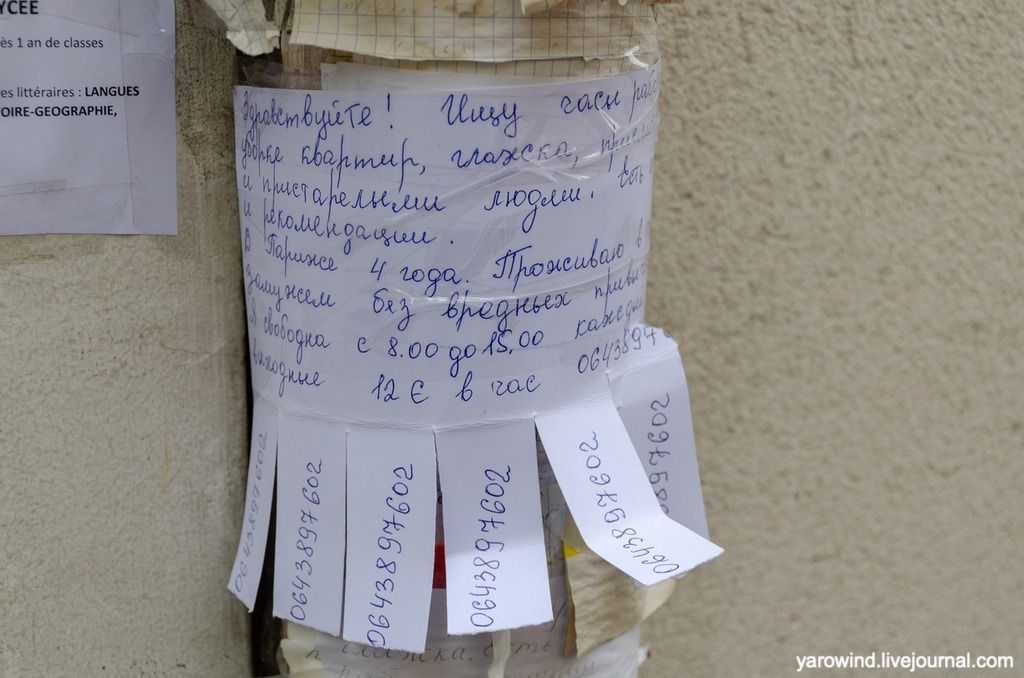 YCEE
ès 1 an de classes
es littéraires : LANGUES
OIRE-GEOGRAPHIE,
Здравствуйте! Ищу часы
уборке квартир, глажска,
и пристарелыми людми. Есть
и рекомендации.
В Париже 4 года. Проживаю в
замужем без вредных
Я свободна с 8.00 до 15.00
выходные 12 € в час 06438976
0643897602
0643897602
0643897602
0643897602
0643897602
0643897602
yarowind.livejournal.com